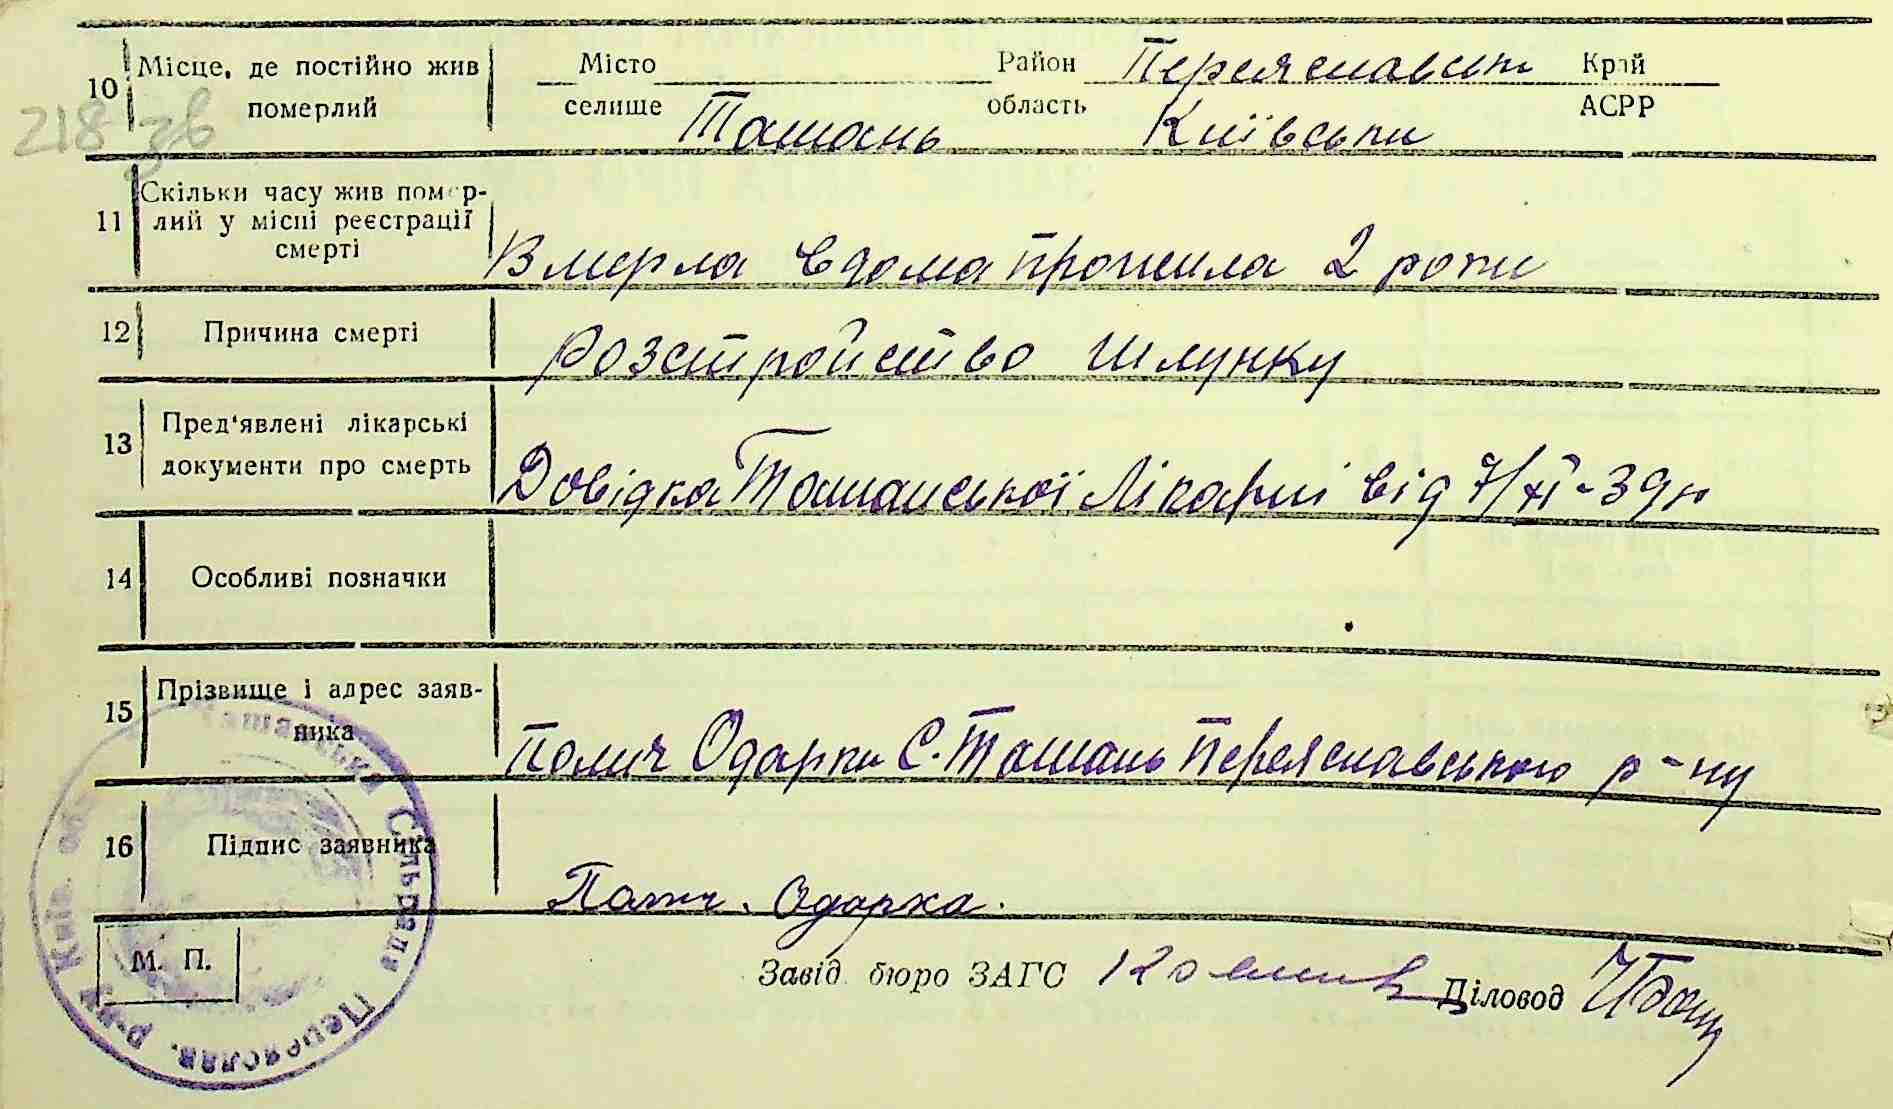 10 Місце, де постійно жив померлий
Місто Район Переяславськ Край
селище Ташань область Київськи АСРР
218 зв
11 Скільки часу жив помер-
лий у місці реєстрації
смерті
Вмерла вдома прожила 2 роки
12 Причина смерті Розстройство шлунку
13 Пред'явлені лікарські
документи про смерть
Довідка Ташанської Лікарні від 7/XI-39 р
14 Особливі позначки
15 Прізвище і адрес заяв-
ника
Одарки С. Ташань Переяславського р-ну
16 Підпис заявника
Одарка.
М. П.
Завід. бюро ЗАГС Діловод
Ташанська Сільрада Переяслав. р-ну Київ. обл.